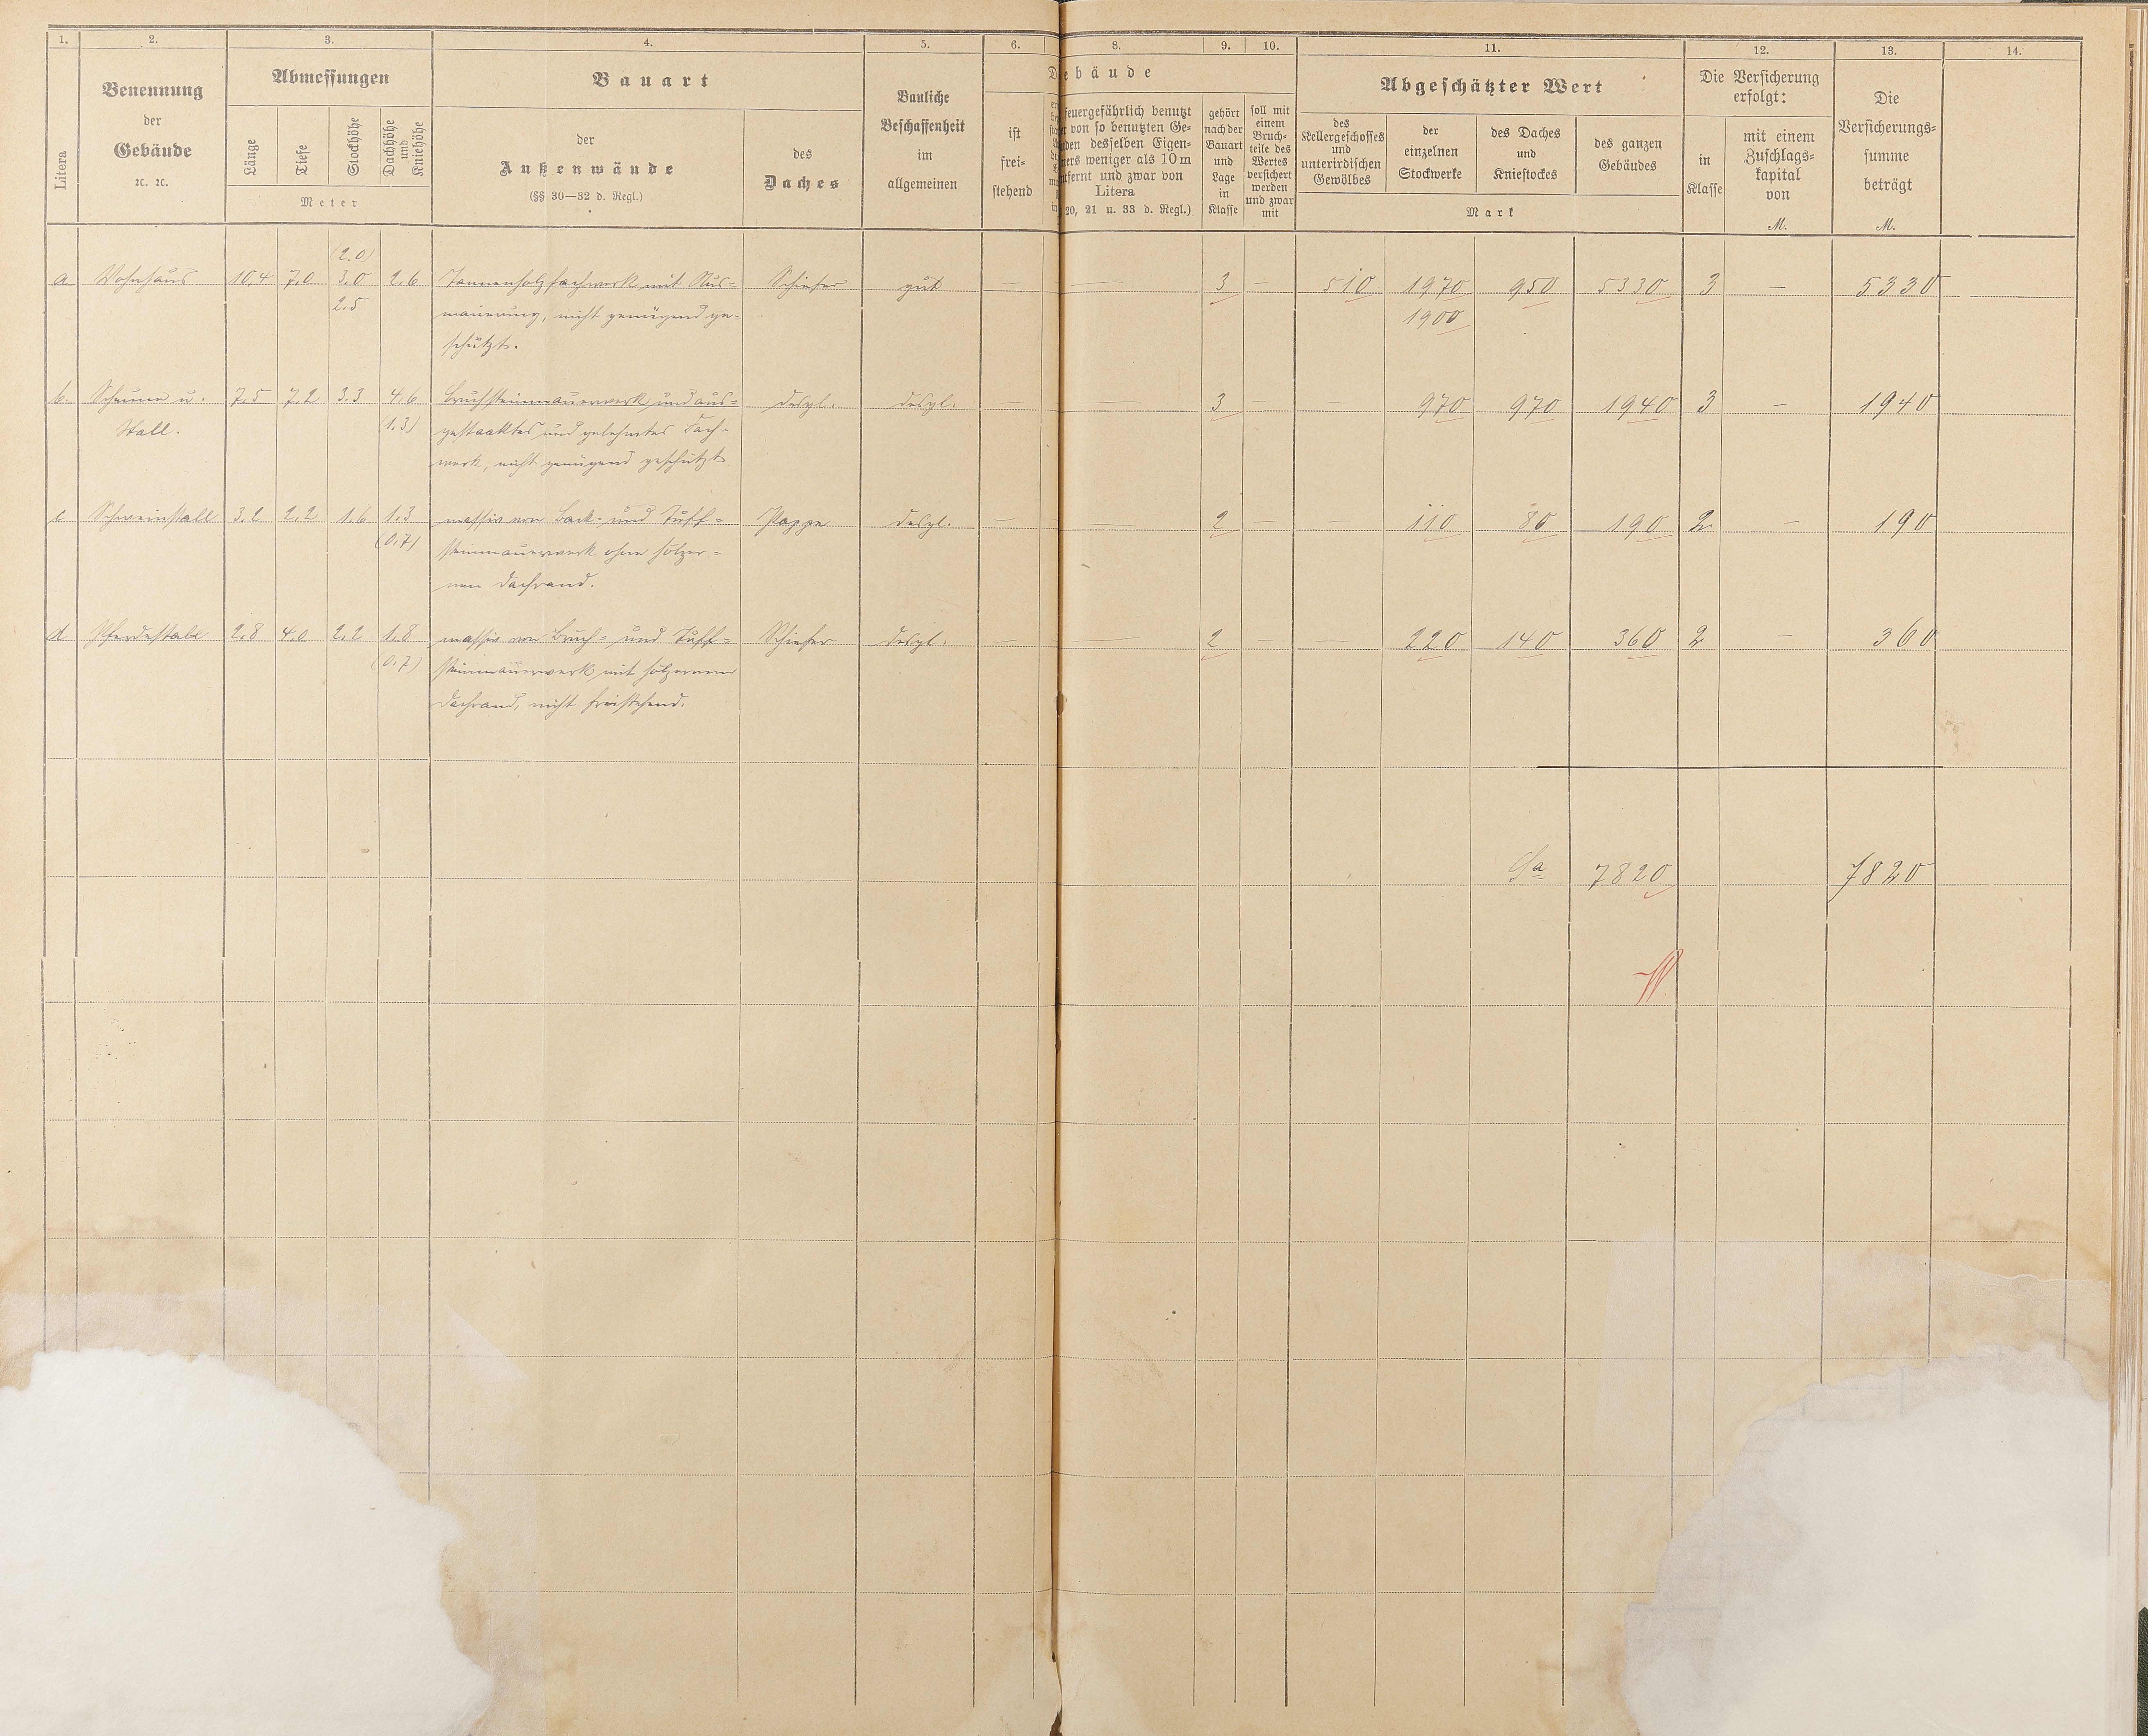 1. 2. 3. 4. 5. 6. 8. 9. 10. 11. 12. 13. 14.
Litera
Benennung
der
Gebäude
ꝛc. ꝛc.
Abmessungen
Länge
Tiefe
Stockhöhe
Dachhöhe
und
Kniehöhe
Meter
Bauart
der
Außenwände
(§§ 30—32 d. Regl.)
des
Daches
Bauliche
Beschaffenheit
im
allgemeinen
ist
frei-
stehend
ebäude
feuergefährlich benutzt
von so benutzten Ge-
den desselben Eigen-
ers weniger als 10 m
tfernt und zwar von
Litera
20, 21 u. 33 d. Regl.)
gehört
nach der
Bauart
und
Lage
in
Klasse
soll mit
einem
Bruch-
teile des
Wertes
versichert
werden
und zwar
mit
Abgeschätzter Wert
des
Kellergeschosses
und
unterirdischen
Gewölbes
der
einzelnen
Stockwerke
des Daches
und
Kniestockes
des ganzen
Gebäudes
Mark
Die Versicherung
erfolgt:
in
Klasse
mit einem
Zuschlags-
kapital
von
M.
Die
Versicherungs-
summe
beträgt
M.
(2.0)
a Wohnhaus 10,4 7,0 3.0 2.6 Tannenholzfachwerk mit Aus- Schiefer gut — — 3 — 510 1970 950 5330 3 — 5330 —
2.5 mauerung, nicht genügend ge- 1900
schützt.
b. Scheune u. 7,5 7,2 3.3 4.6 Bruchsteinmauerwerk und aus- desgl. desgl. 3 — 970 970 1940 3 — 1940
Stall. (1.3) gestaaktes und gelehmtes Fach-
werk, nicht genügend geschützt
c Schweinstall 3.2 2,2 1.6 1.3 massiv von Back- und Tuff- Pappe desgl. — 2 — 110 80 190 2 — 190
(0.7) steinmauerwerk ohne hölzer-
nen Dachrand.
d Pferdestall 2,8 4.0 2,2 1.8 massiv von Bruch- und Tuff- Schiefer desgl. — 2 — 220 140 360 2 — 360
(0.7) steinmauerwerk mit hölzernem
Dachrand, nicht freistehend.
Sa 7820 7820